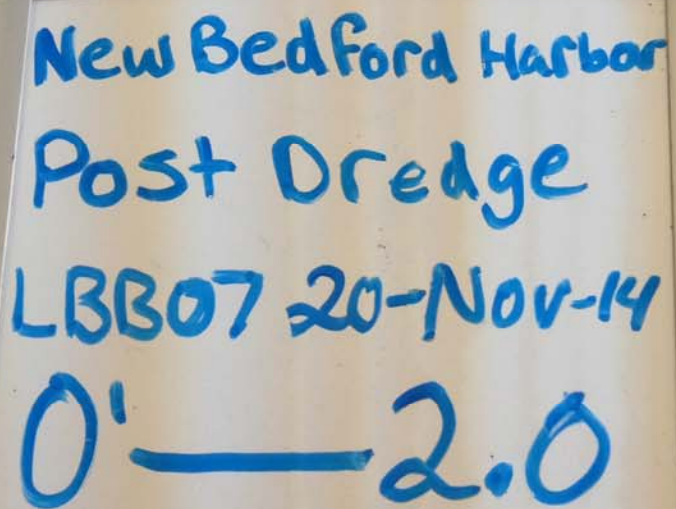 New Bedford Harbor
Post Dredge
LBB07 20-Nov-14
0'—2.0